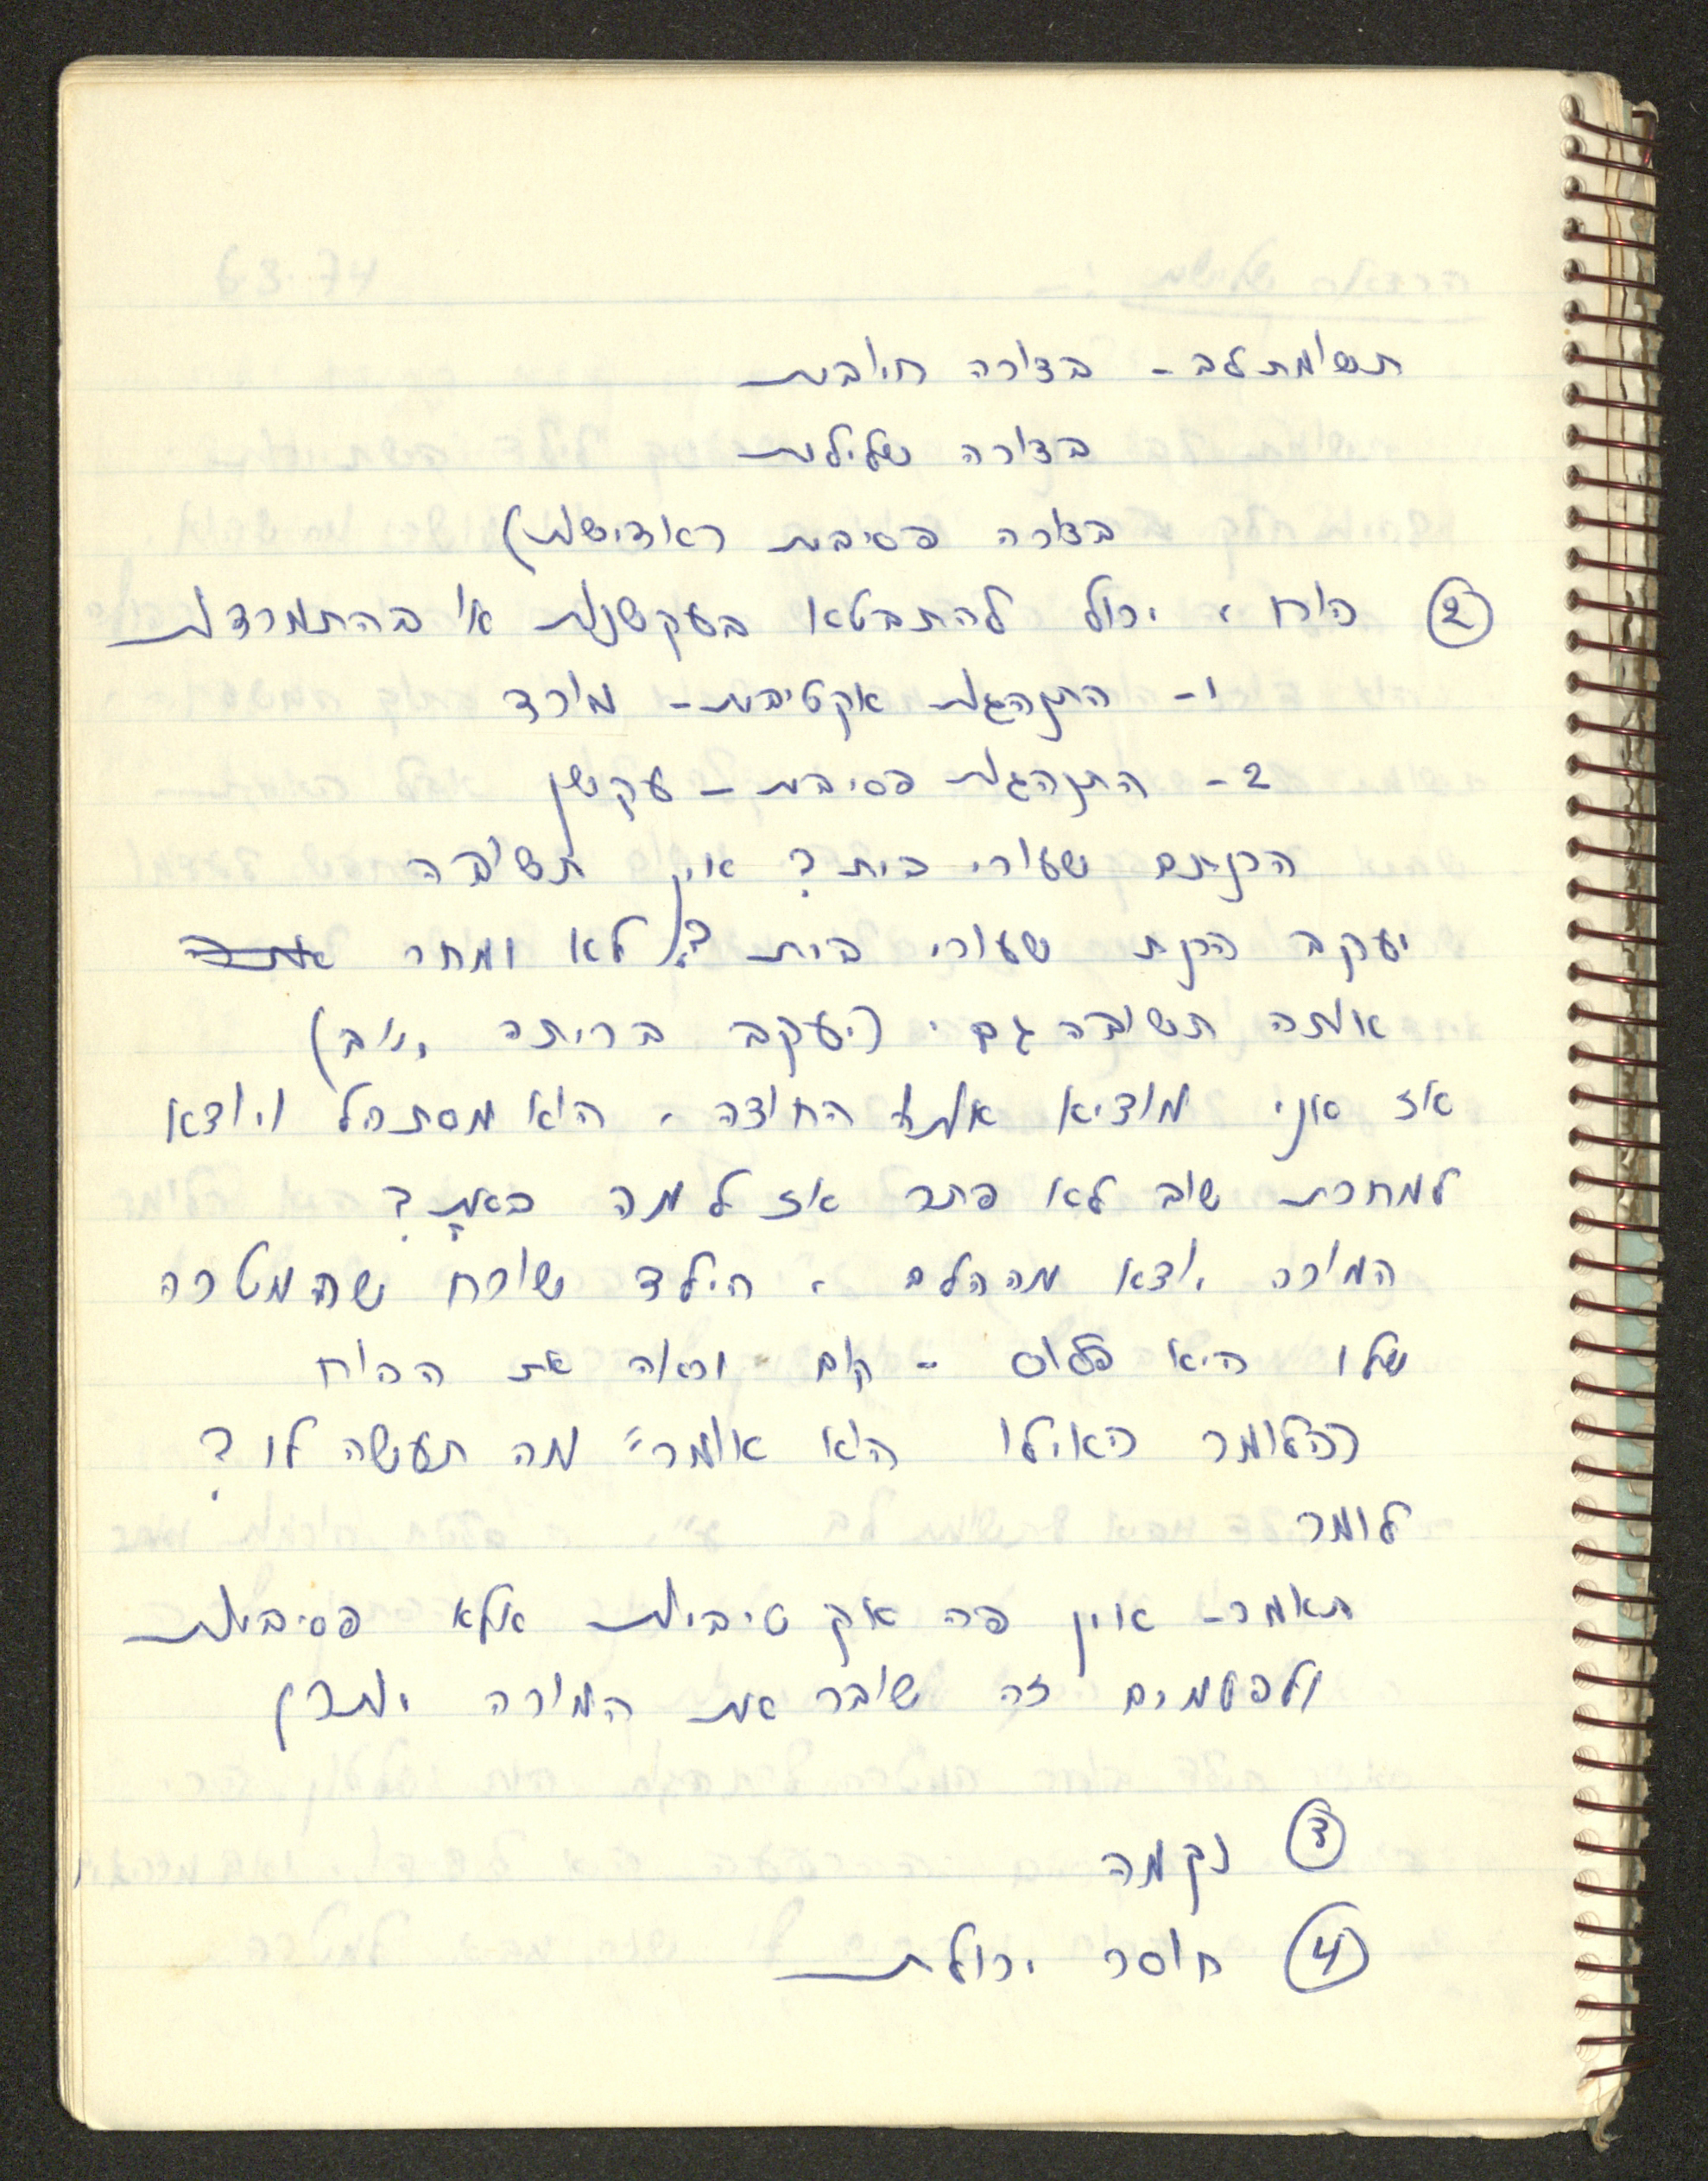 תשומת לב - בצורה חיובית
בצורה שלילית
בצורה פסיבית (אדישות)
② כוח, יכול להתבטא בעקשנות או בהתמרדות
1- התנהגות אקטיבית - מורד
2- התנהגות פסיבית - עקשן
הכנתם שעורי בית? אין תשובה
יעקב הכנת שעורי בית? לא ומחר
אותה תשובה גם. (יעקב בכיתה
אז אני מוציא אותו החוצה, הוא מסתכל ויוצא
למחרת שוב לא פתר אז למה באת?
המורה יוצא מהכלים, הילד שוכח שהמטרה
שלו היא - קום וראה את הכוח
כלומר כאילו הוא אומר" מה תעשה לי?
לומר
תאמר - אין פה אקטיביות אלא פסיביות
ולפעמים זה שובר את המורה יותר)
③ נקמה
④ חוסר יכולת